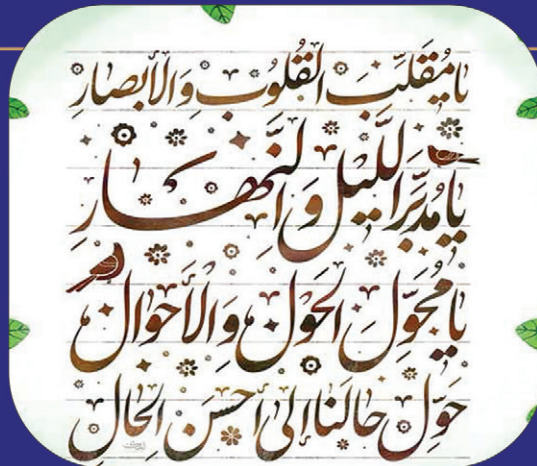 يا مُقَلِّبَ القُلُوبِ وَ الأَبصارِ
يا مُدَبِّرَ اللَّيلِ وَ النَّهارِ
يا مُحَوِّلَ الحَولِ وَ الأَحوالِ
حَوِّل حالَنا إِلى أَحسَنِ الحالِ